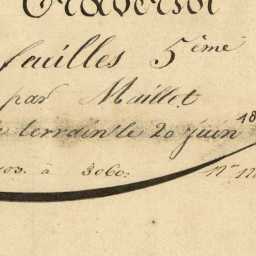 Traversol
feuilles 5ème
par Maillet
terrain le 20 juin 18
à 3060.